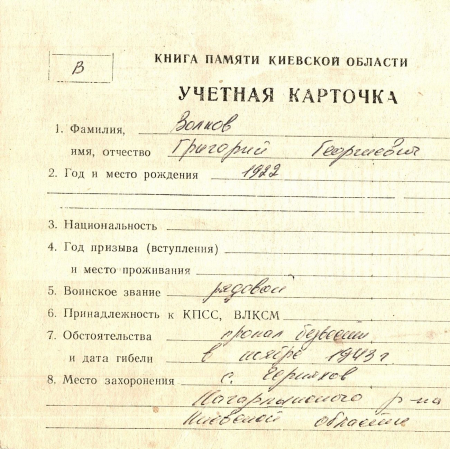 В
КНИГА ПАМЯТИ КИЕВСКОЙ ОБЛАСТИ
УЧЕТНАЯ КАРТОЧКА
1. Фамилия, Волков
имя, отчество Григорий Георгиевич
2. Год и место рождения 1922
3. Национальность
4. Год призыва (вступления)
и место проживания
5. Воинское звание рядовой
6. Принадлежность к КПСС, ВЛКСМ
7. Обстоятельства пропал безвести
и дата гибели в ноябре 1943 г
8. Место захоронения с. Черняхов
Кагарлыкского р-на
Киевской области